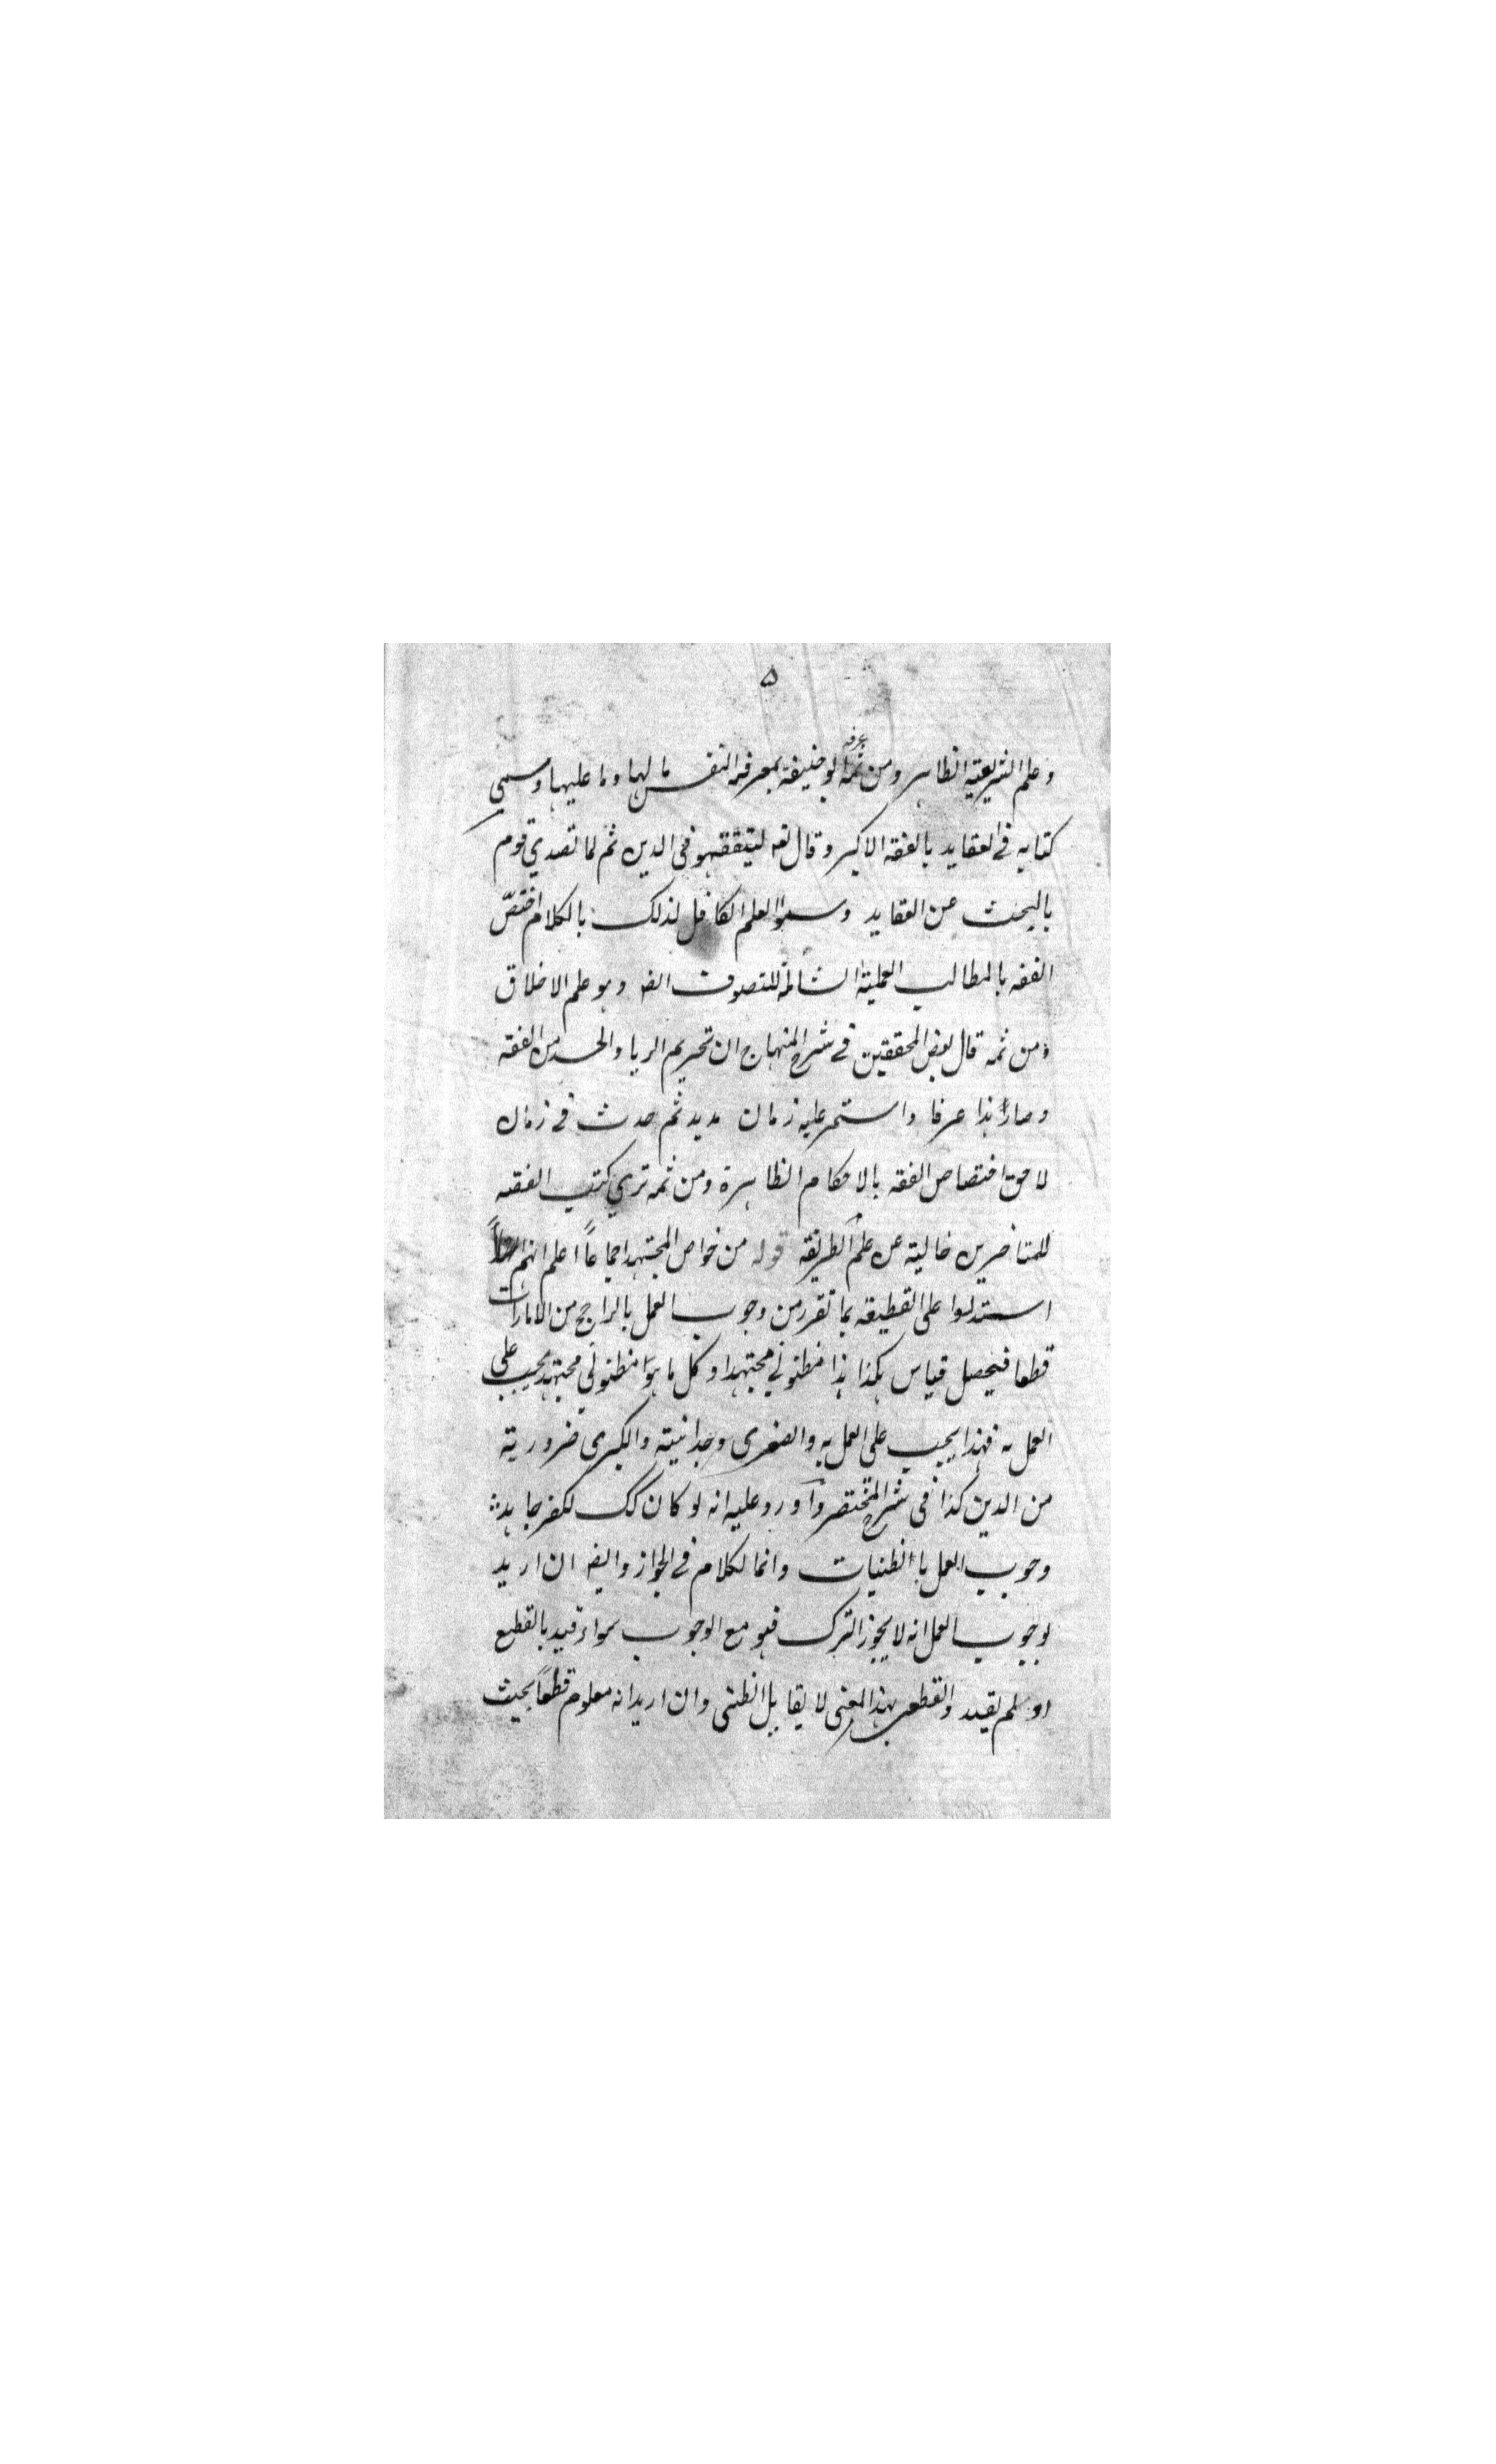 ۵
وعلم الشريعة الظاهر ومن ثمه عرفه ابو حنيفة بمعرفة النفس مالها وما عليها وسمى
كتابه في العقايد بالفقه الاكبر وقال تعه ليتفقهوا في الدين ثم لما تصدي قوم
بالبحث عن العقايد وسموا العلم الكافل لذلك بالكلام اختصّ
الفقه بالمطالب العملية الشاملة للتصوف ايضا وهو علم الاخلاق
ومن ثمه قال بعض المحققين في شرح المنهاج ان تحريم الريا والحسد من الفقه
وصار هذا عرفا واستمر عليه زمان مديد ثم حدث في زمان
لاحق اختصاص الفقه بالاحكام الظاهرة ومن ثمه تري كتب الفقه
للمتاخرين خالية عن علم الطريقة قوله من خواص المجتهد اجماعاً اعلم انهم
استدلوا على القطعية بما تقرر من وجوب العمل بالراجح من الامارات
قطعا فيحصل قياس هكذا هذا مظنوني مجتهدا وكل ما هو مظنوني مجتهدا يجب علي
العمل به فهذا يجب علي العمل به والصغرى وجدانية والكبرى ضرورية
من الدين كذا في شرح المختصر واورد عليه انه لو كان كك لكفر جاهد
وجوب العمل بالظنيات وانما الكلام في الجواز وايضا ان اريد
بوجوب العمل انه لا يجوز الترك فهو مع الوجوب سواء قيد بالقطع
او لم يقيد والقطعي بهذا المعنى لا يقابل الظني وان اريد انه معلوم قطعاً بحيث